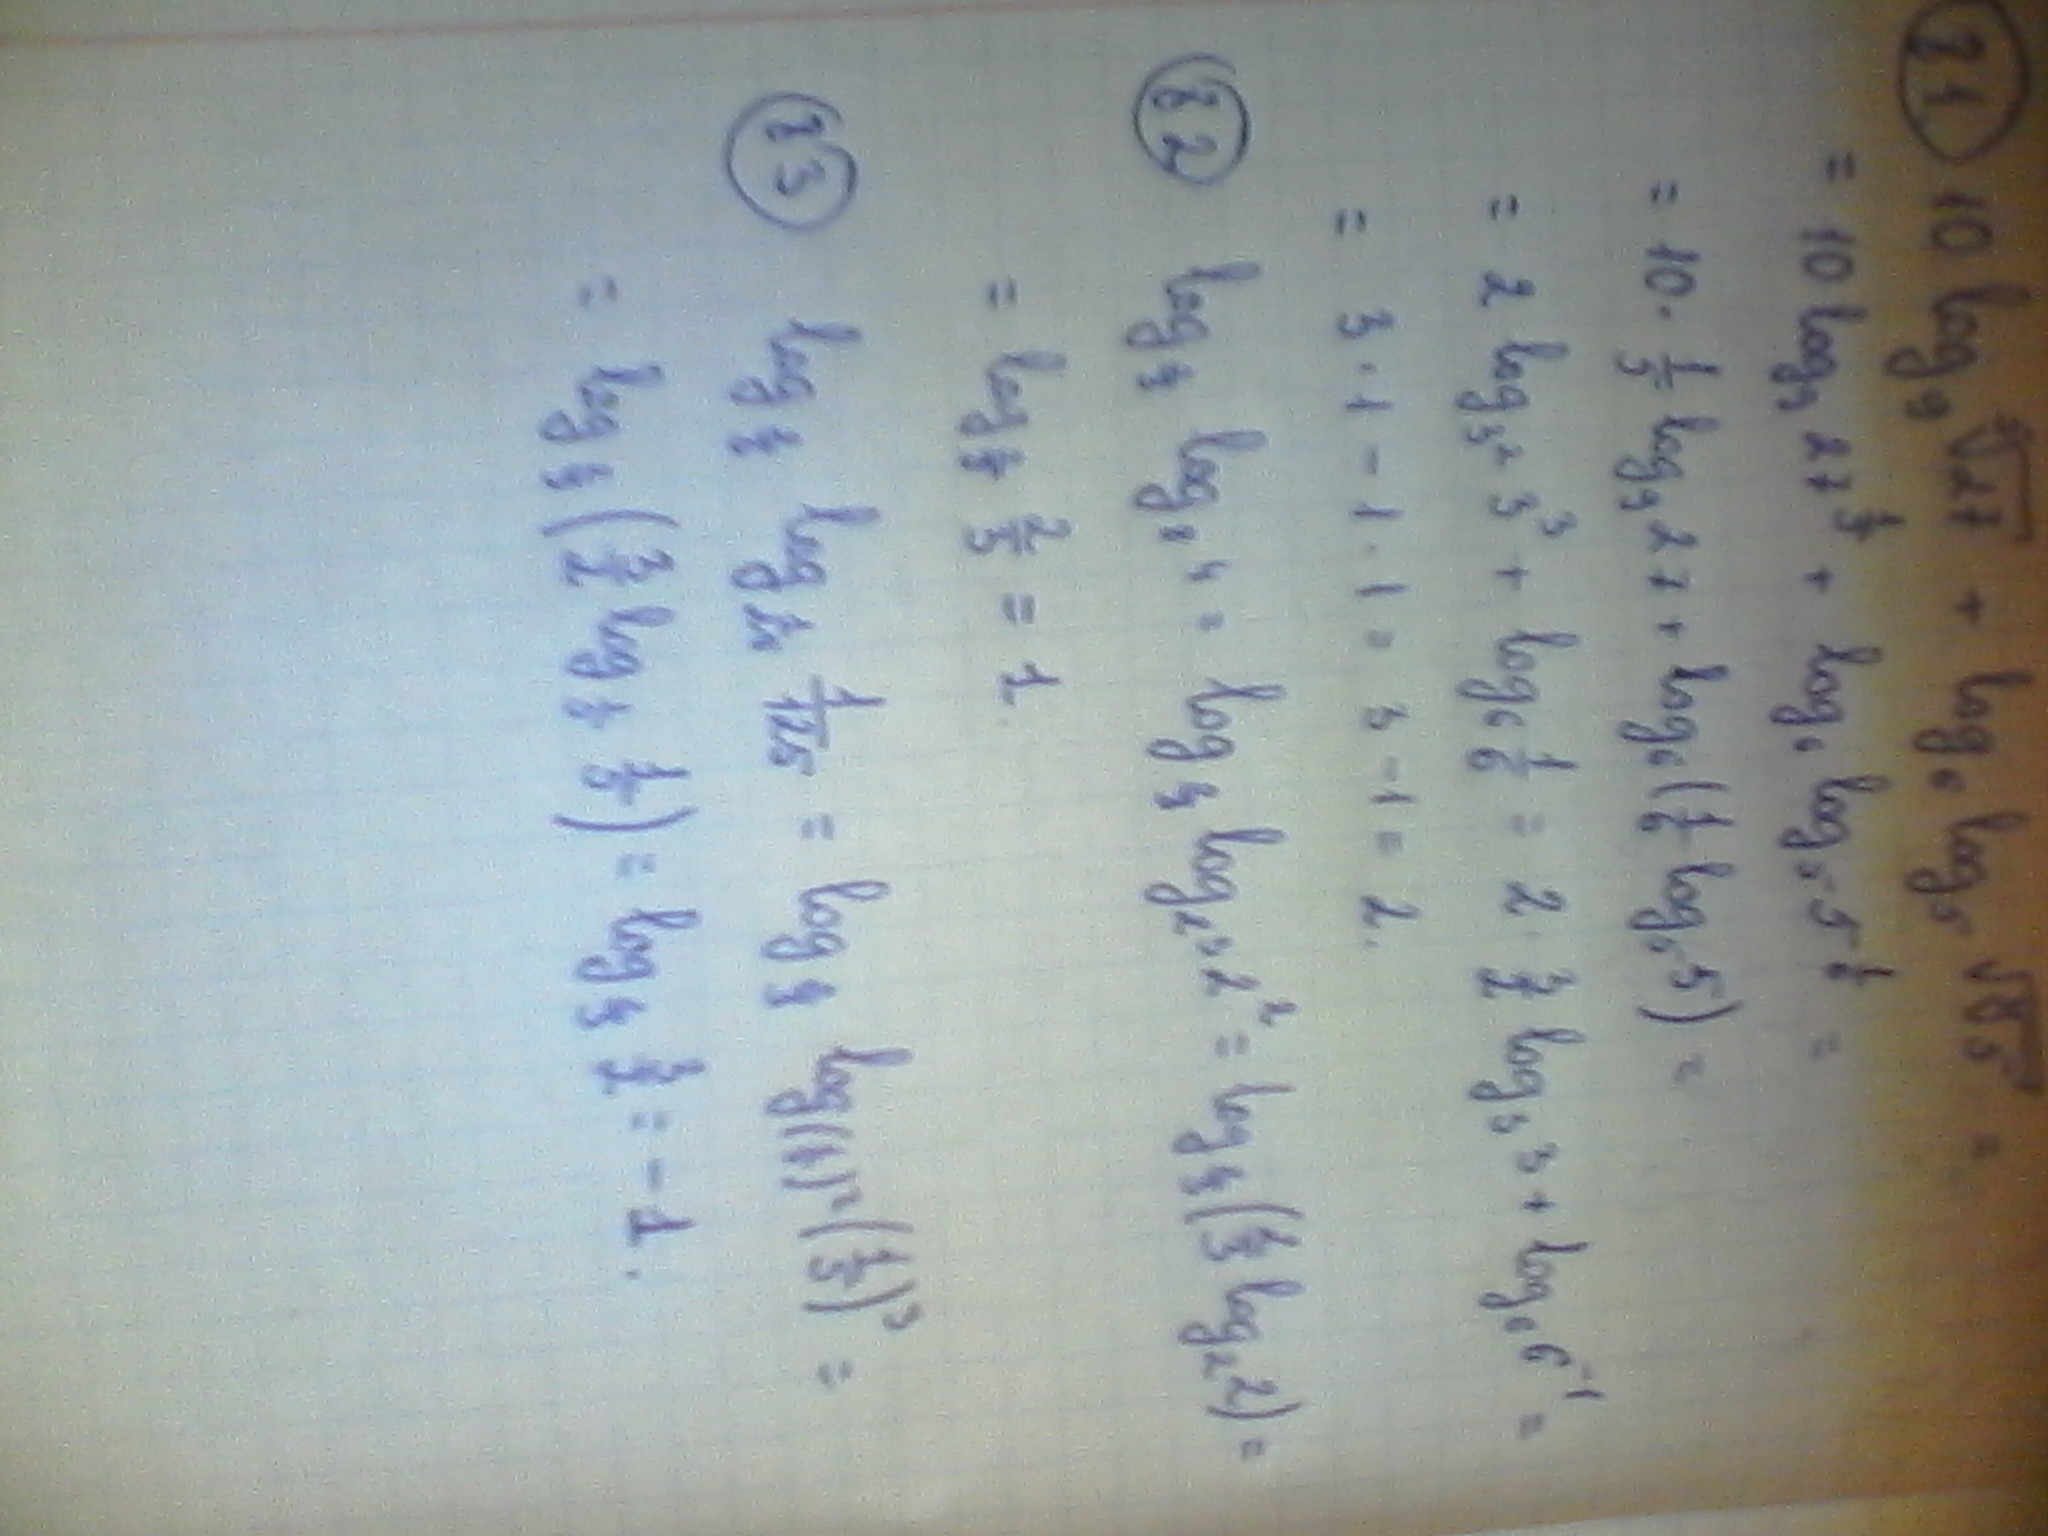 81 10 log₉ ⁵√27 + log₆ log₅ ⁶√5 =
= 10 log₉ 27^(1/5) + log₆ log₅ 5^(1/6) =
= 10 · 1/5 log₉ 27 + log₆ (1/6 log₅ 5) =
= 2 log₃² 3³ + log₆ 1/6 = 2 · 3/2 log₃ 3 + log₆ 6⁻¹ =
= 3 · 1 - 1 · 1 = 3 - 1 = 2.
82 log₂/₃ log₈ 4 = log₂/₃ log₂³ 2² = log₂/₃ (2/3 log₂ 2) =
= log₂/₃ 2/3 = 1.
83 log₂/₃ log₁/₂₅ 1/125 = log₂/₃ log₍₁/₅₎² (1/5)³ =
= log₂/₃ (3/2 log₁/₅ 1/5) = log₂/₃ 3/2 = -1.